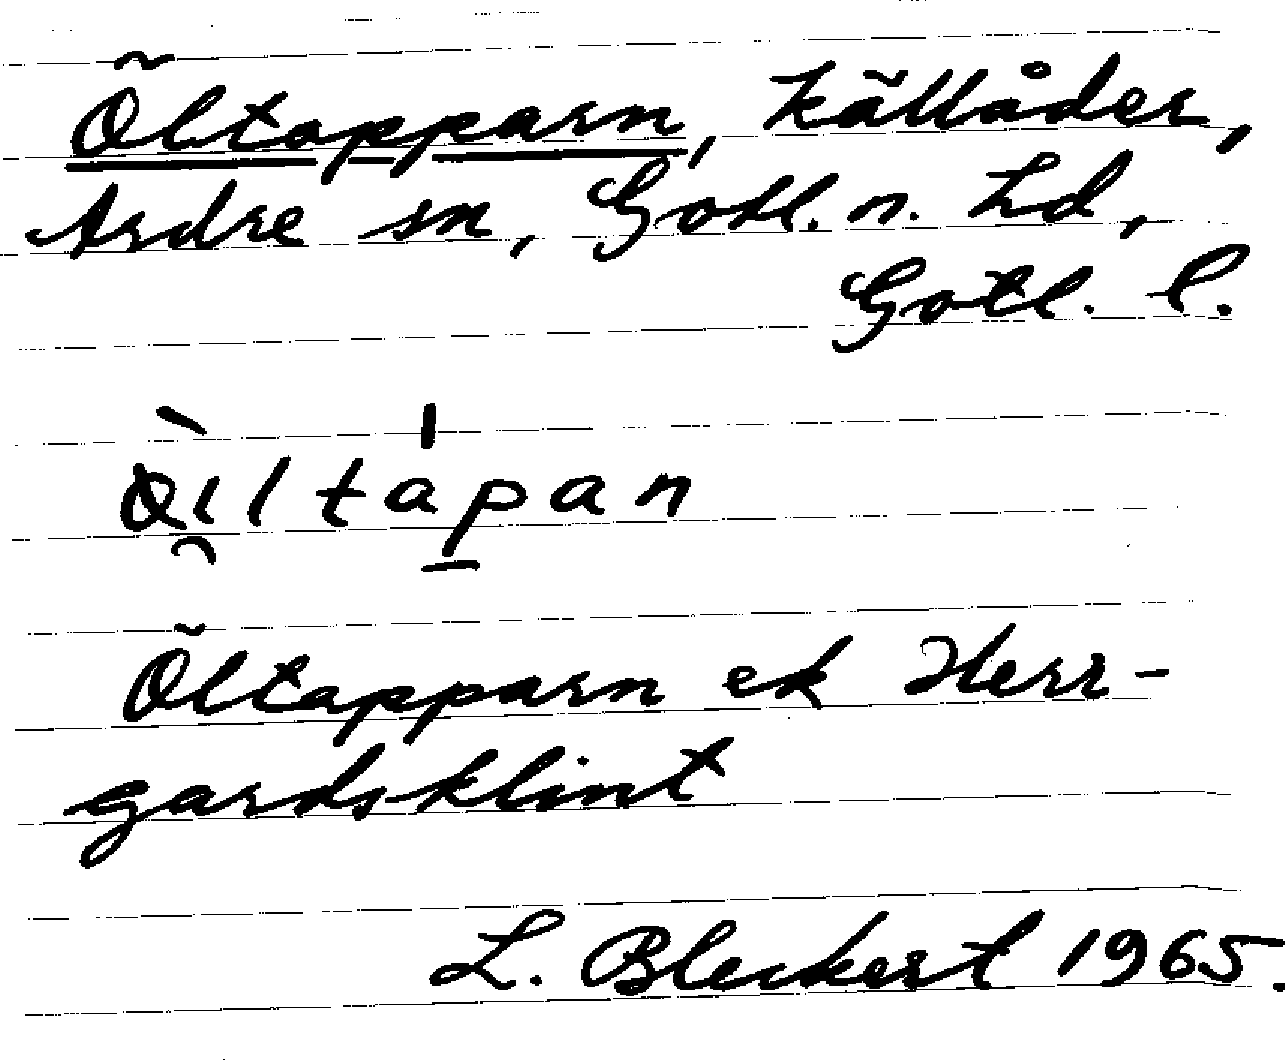 Öltapparn, källåder,
Ardre sn, Gotl. n. hd,
Gotl. l.
Öltapparn ek Herr-
gardsklint
L. Bleckert 1965.